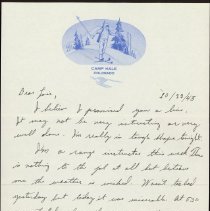 CAMP HALE
COLORADO
10/20/43
Dear Lois,
I believe I promised you a line.
It may not be very interesting or very
well done. I'm really in tough shape tonight.
Am a range instructor this week. This
is nothing to the job at all but believe
me the weather is wicked. Wasn't too bad
yesterday but today it was miserable. At 630